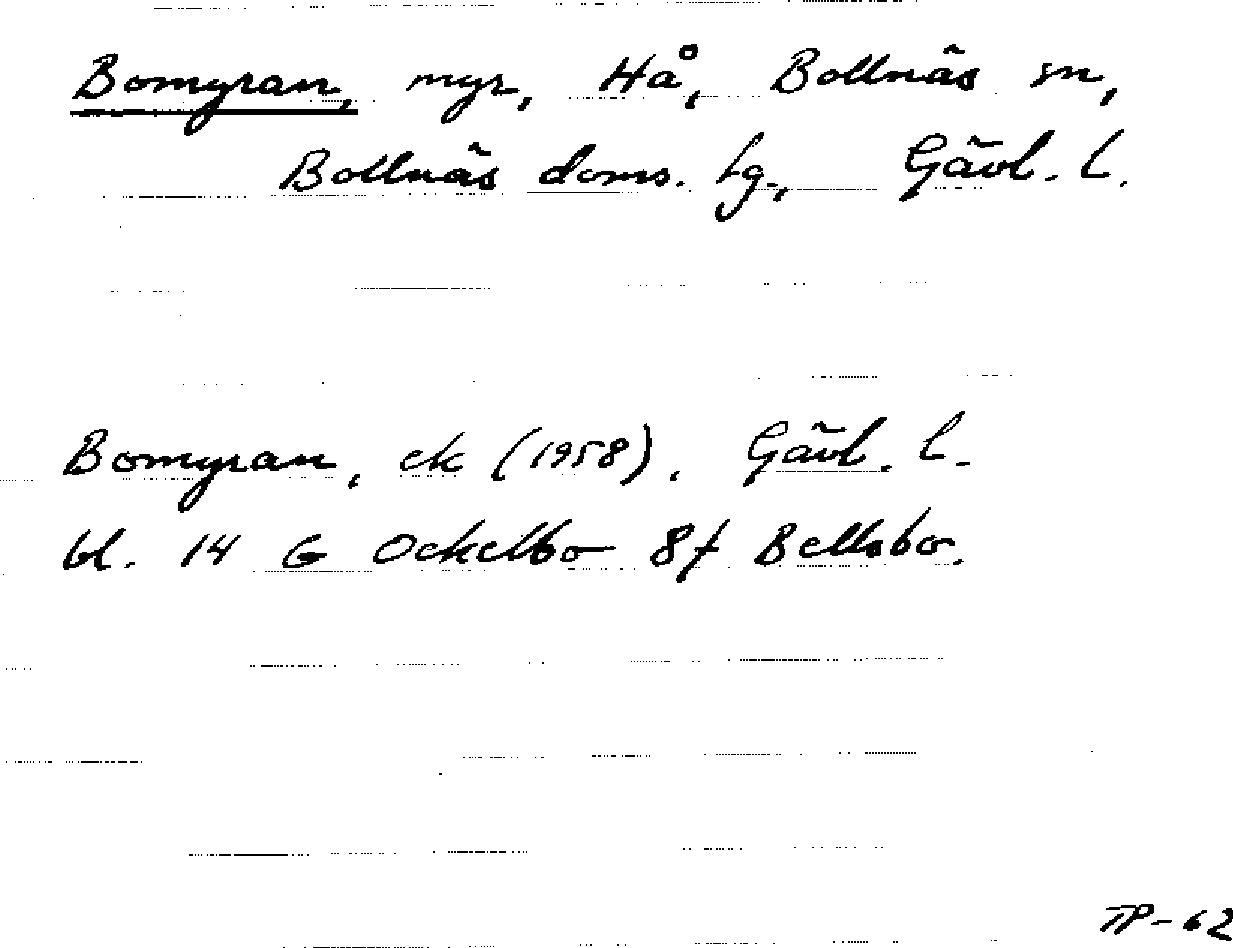 Bomyran, myr, Hå, Bollnäs sn,
Bollnäs doms. hg., Gävl. l.
Bomyran, ek (1958). Gävl. l.
bl. 14 G Ockelbo 8f Bellsbo.
TP-62